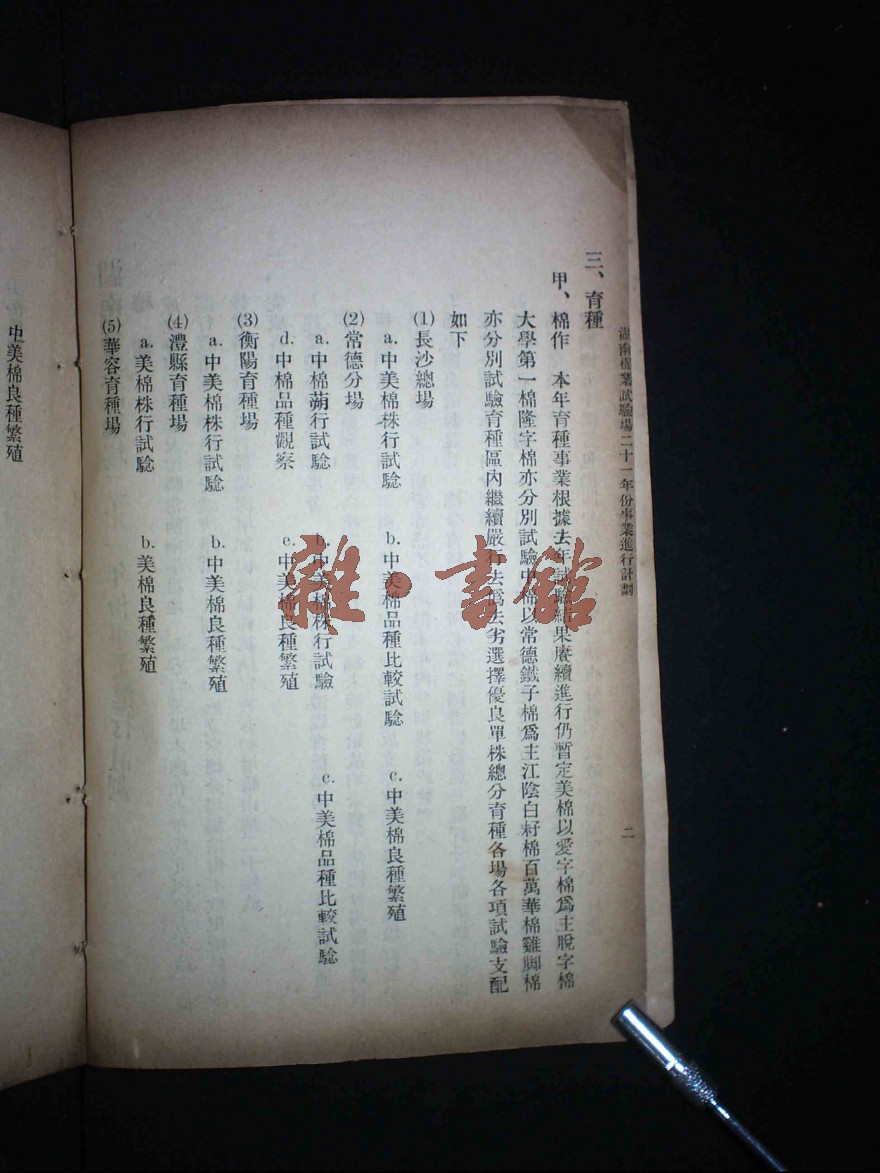 湖南棉業試驗場二十一年份事業進行計劃
二
三、育種
甲、棉作 本年育種事業根據去年試驗結果賡續進行仍暫定美棉以愛字棉爲主脫字棉
大學第一棉隆字棉亦分別試驗中棉以常德鐵子棉爲主江陰白籽棉百萬華棉雞脚棉
亦分別試驗育種區內繼續嚴行去僞去劣選擇優良單株總分育種各場各項試驗支配
如下
(1)長沙總場
a.中美棉株行試驗 b.中美棉品種比較試驗 c.中美棉良種繁殖
(2)常德分場
a.中棉蒴行試驗 b.中美棉株行試驗 c.中美棉品種比較試驗
d.中棉品種觀察 e.中美棉良種繁殖
(3)衡陽育種場
a.中美棉株行試驗 b.中美棉良種繁殖
(4)澧縣育種場
a.美棉株行試驗 b.美棉良種繁殖
(5)華容育種場
中美棉良種繁殖
雜·書館